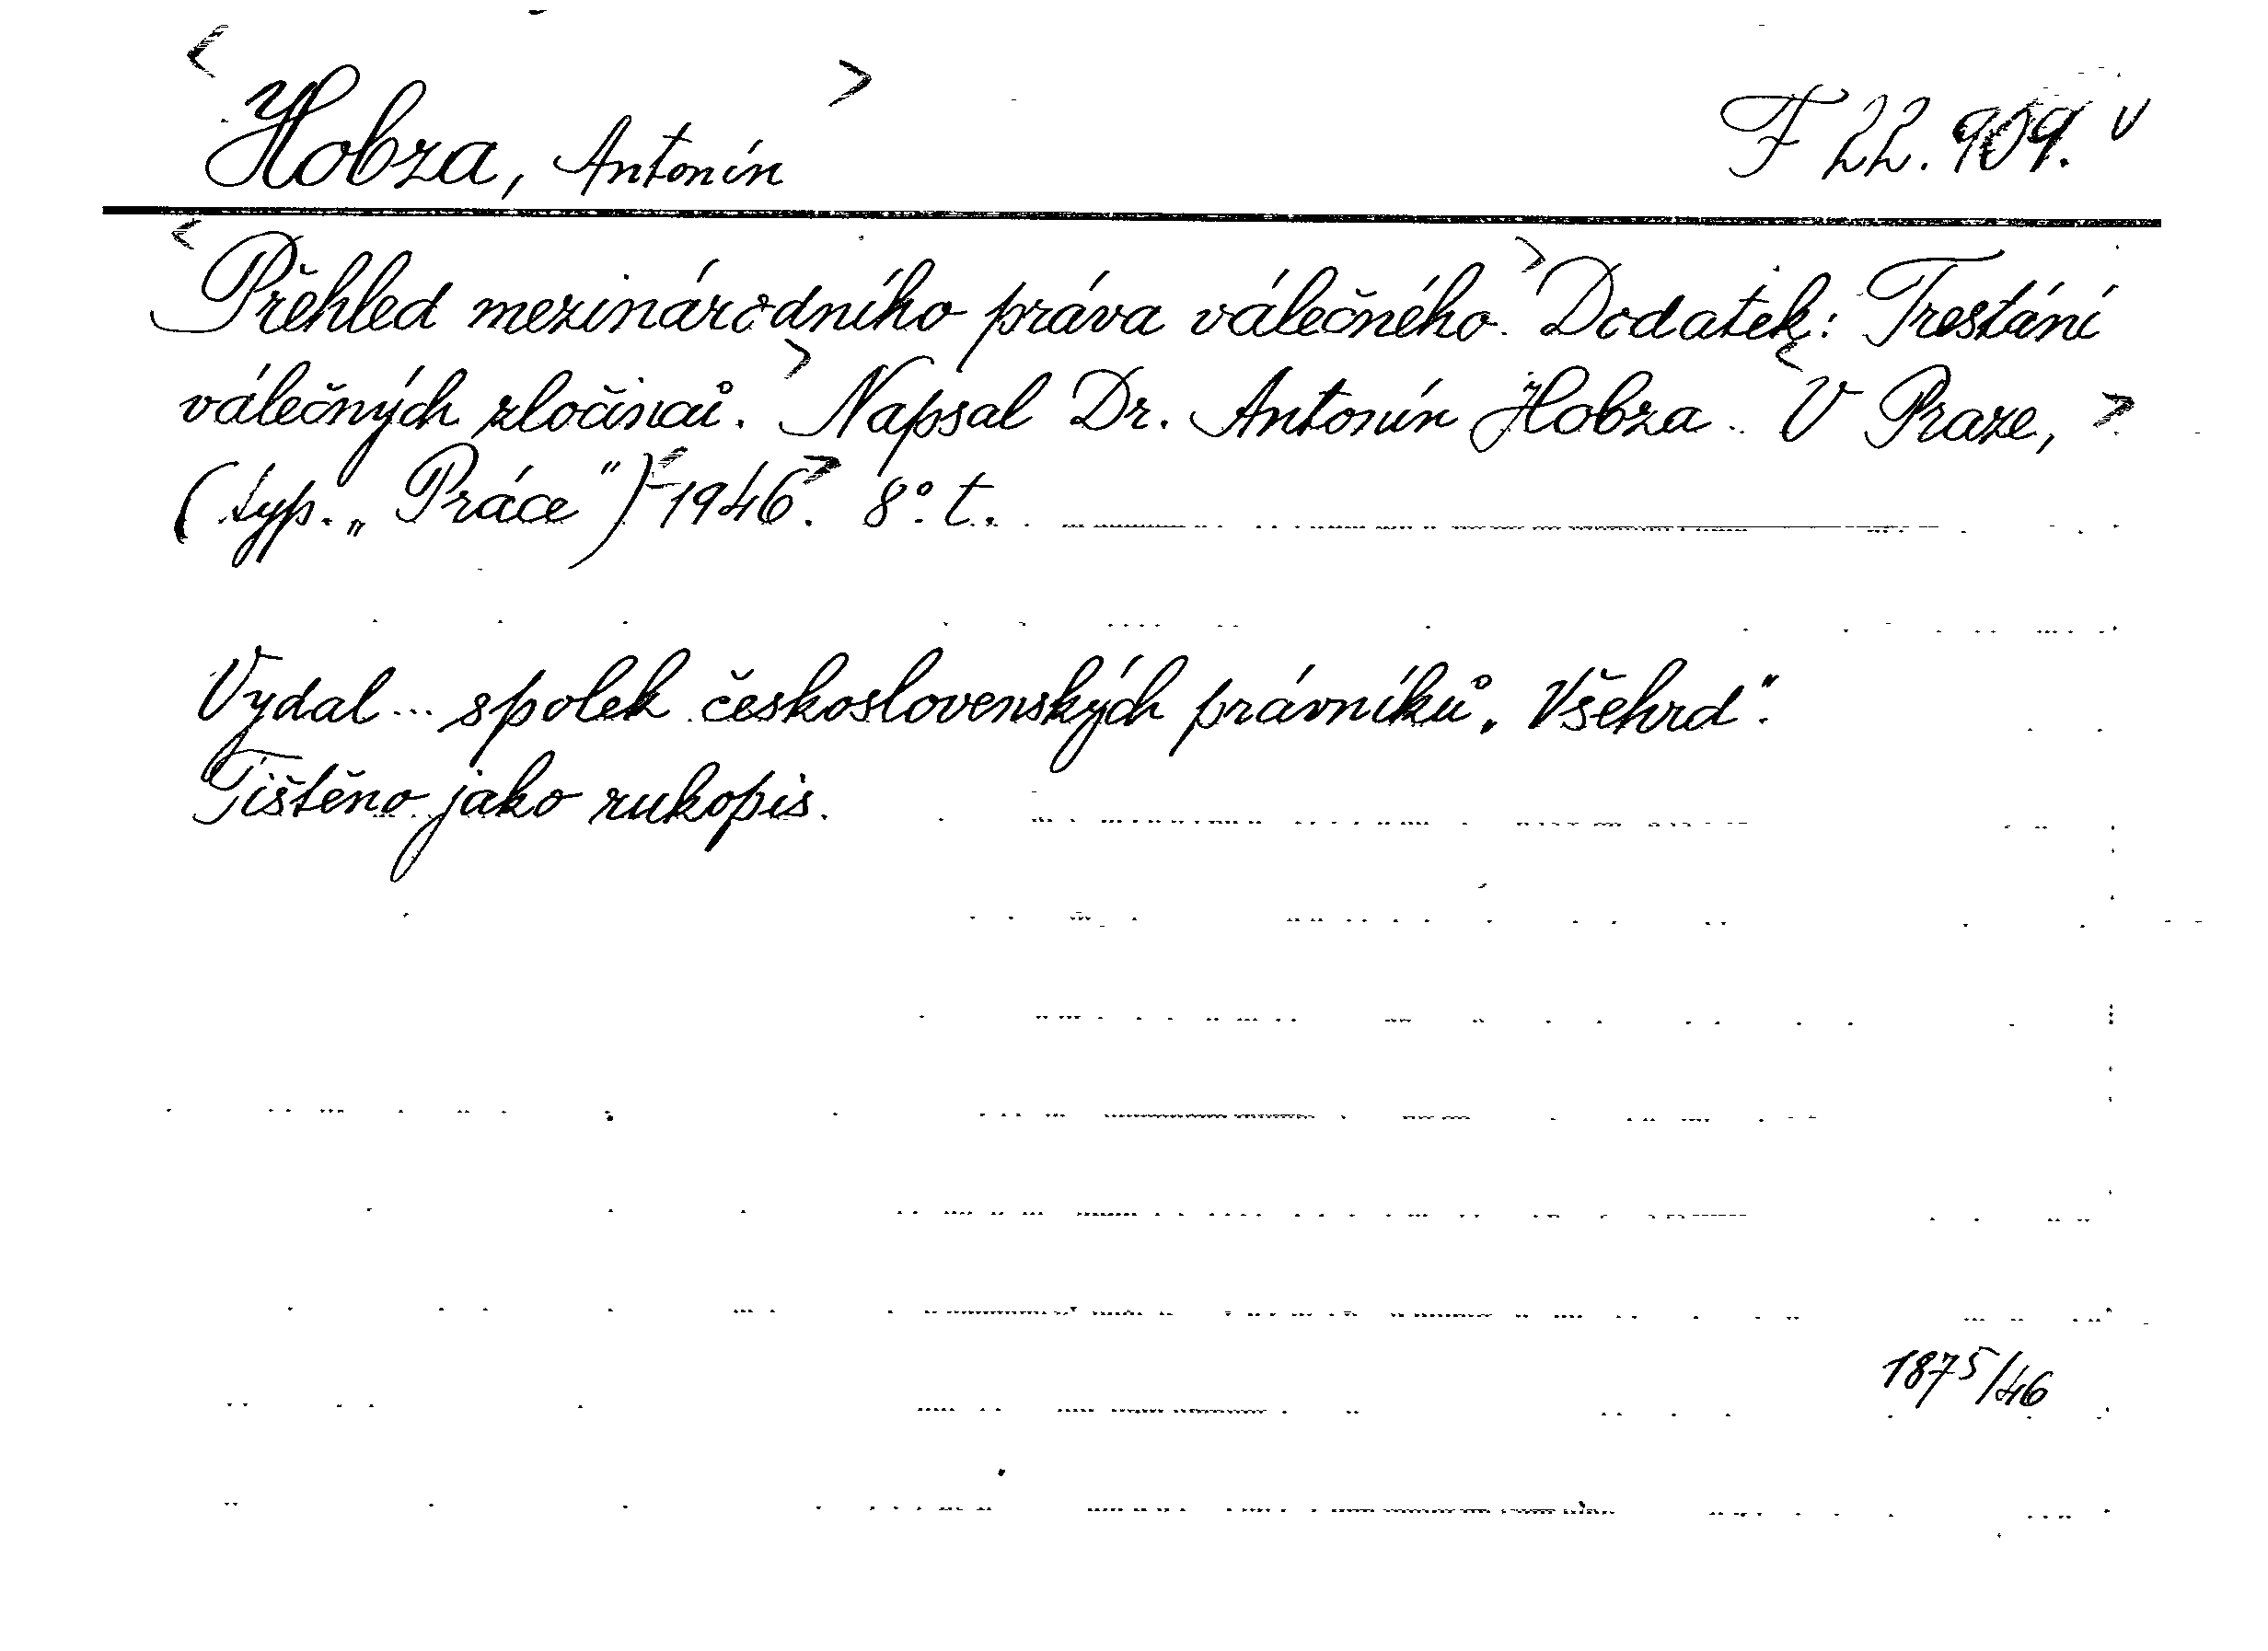 <Hobza, Antonín> F 22.909. v
<Přehled mezinárodního práva válečného.> Dodatek: Trestání
válečných zločinců.> Napsal Dr. Antonín Hobza. <V Praze,>
(typ. „Práce") <1946>. 8°. t.
Vydal... spolek československých právníků „Všehrd".
Tištěno jako rukopis.
1875/46